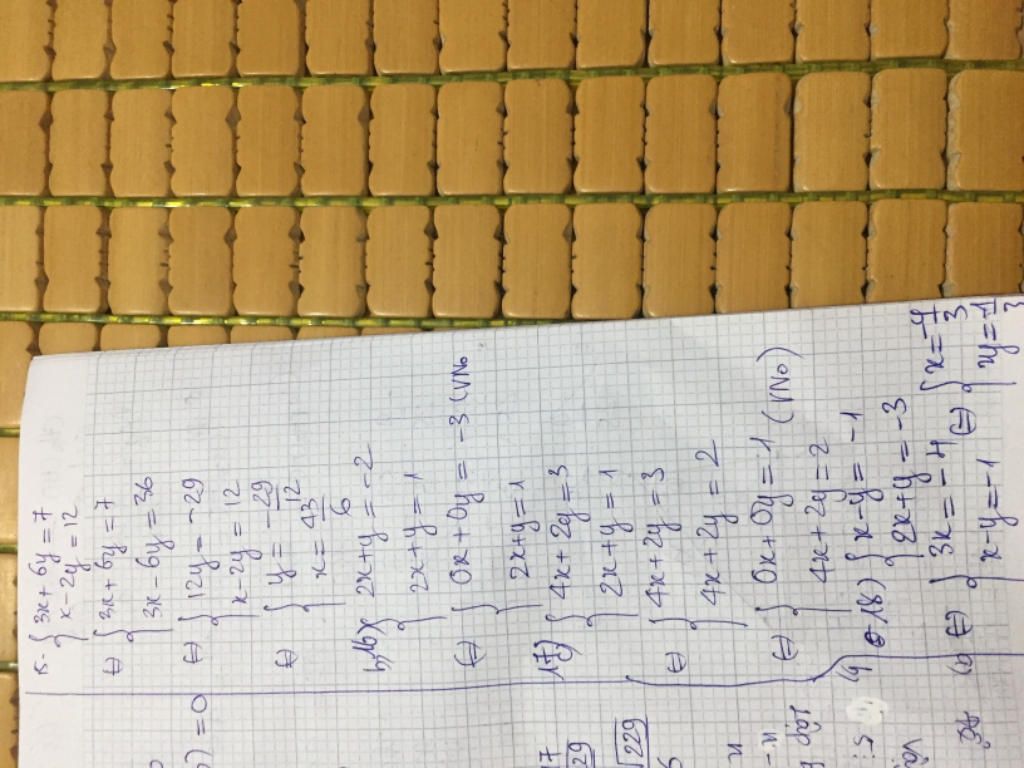 15- { 3x + 6y = 7
x - 2y = 12
⇔ { 3x + 6y = 7
3x - 6y = 36
⇔ { 12y = -29
x - 2y = 12
⇔ { y = -29/12
x = 43/6
16) { 2x + y = -2
2x + y = 1
⇔ { 0x + 0y = -3 (VNo
2x + y = 1
17) { 4x + 2y = 3
2x + y = 1
⇔ { 4x + 2y = 3
4x + 2y = 2
⇔ { 0x + 0y = 1 (VNo)
4x + 2y = 2
18) { x - y = -1
2x + y = -3
⇔ { 3x = -4 ⇔ { x = -4/3
x - y = -1 y = -1/3
) = 0
√229